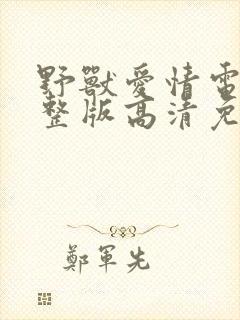 野獸愛情電
整版高清免
鄭軍先